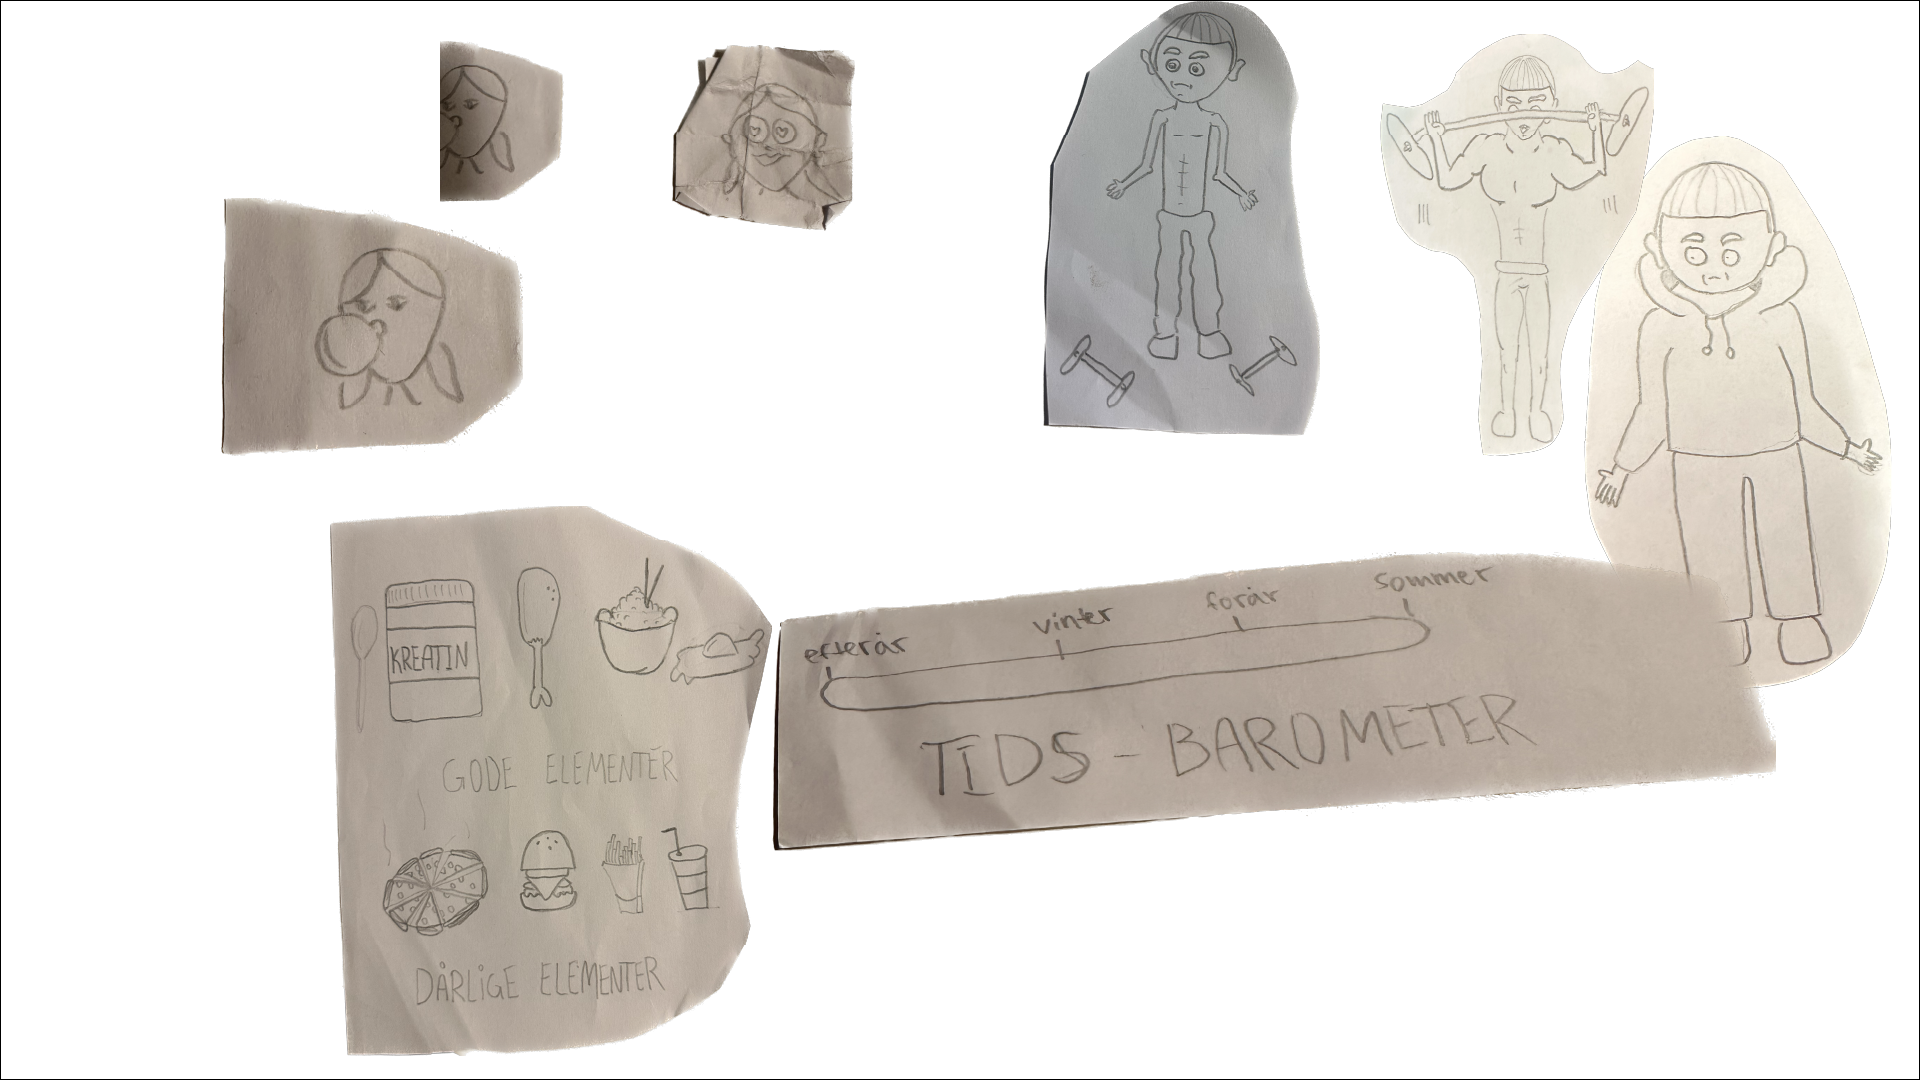 KREATIN
GODE ELEMENTER
DÅRLiGE ELEMENTER
efterår
vinter
forår
sommer
TIDS - BAROMETER